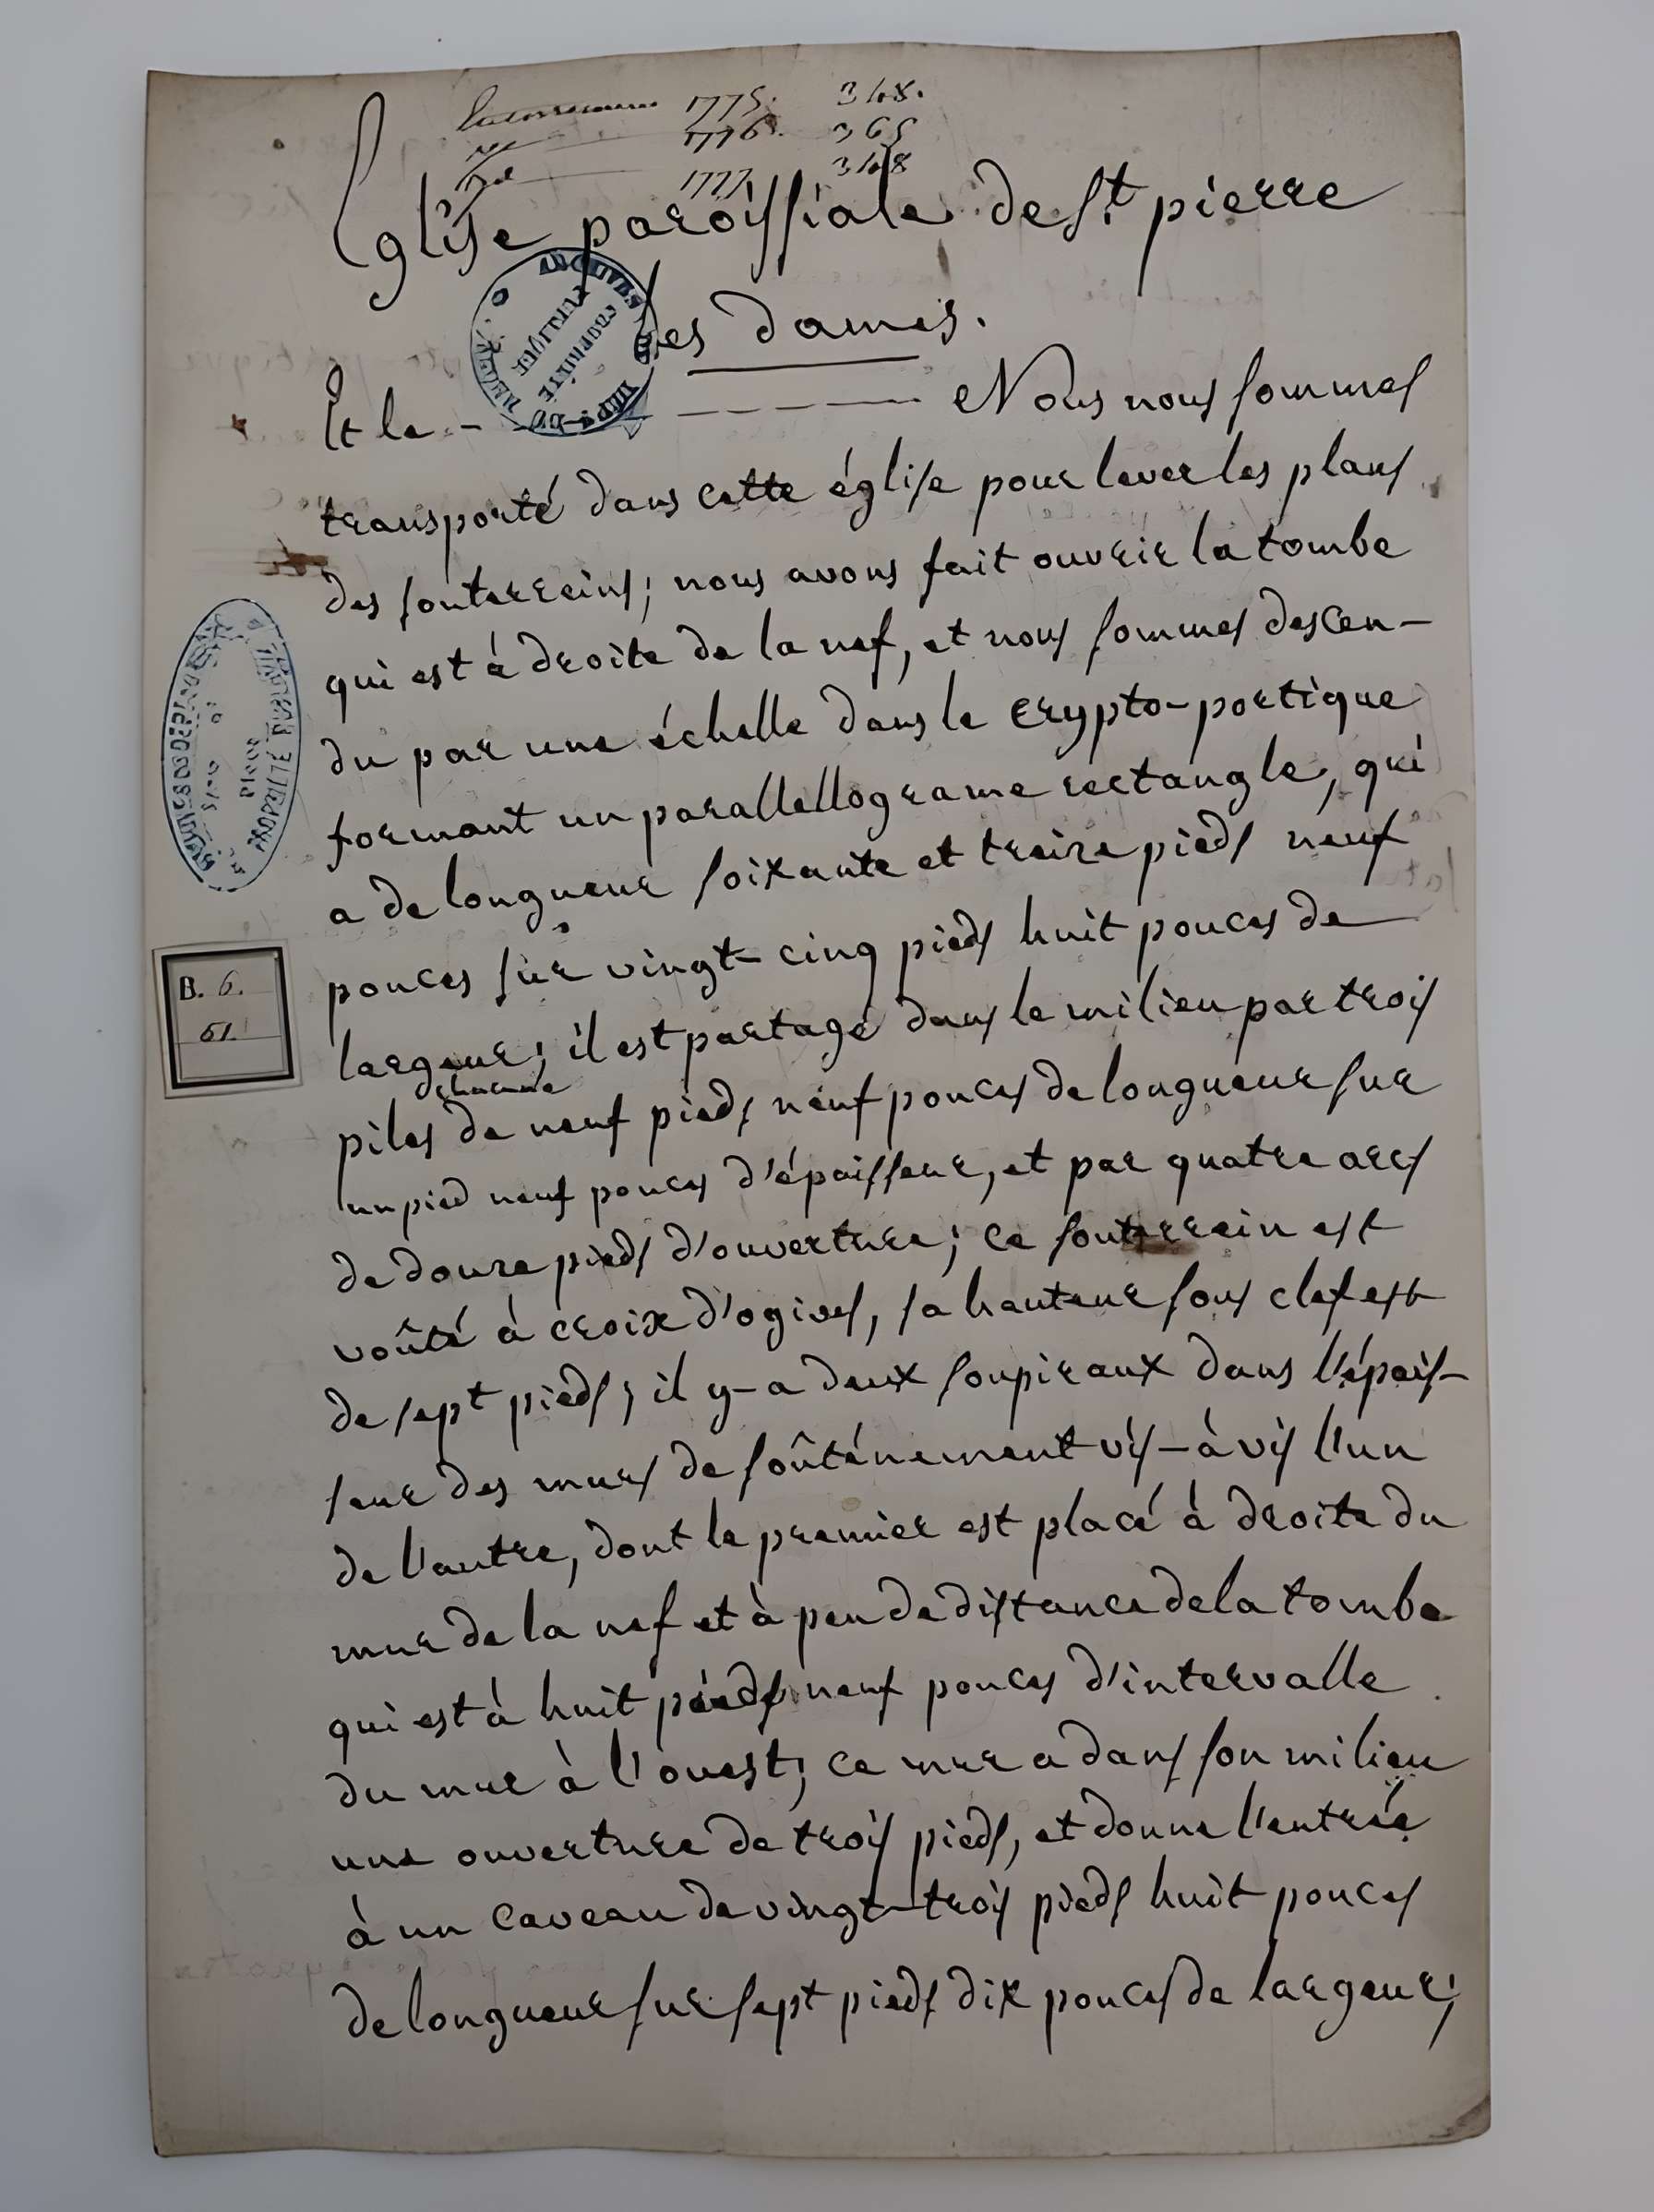 1775. 348.
1776. 365
1777. 348
Eglise paroissiale de St. pierre
les dames.
Et le - - - - - - - Nous nous sommes
transporté dans cette église pour lever les plans
des souterreins; nous avons fait ouvrir la tombe
qui est à droite de la nef, et nous sommes descen-
du par une échelle dans le crypto-portique
formant un parallellograme rectangle, qui
a de longueur soixante et treize pieds neuf
pouces sur vingt-cinq pieds huit pouces de
largeur; il est partagé dans le milieu par trois
dehacune
piles de neuf pieds neuf pouces de longueur sur
un pied neuf pouces d'épaisseur, et par quatre arcs
de douze pieds d'ouverture; ce souterrein est
voûté à croix d'ogives, sa hauteur sous clef est
de sept pieds; il y-a deux soupiraux dans l'épais-
seur des murs de soûténement vis-à vis l'un
de l'autre, dont le premier est placé à droite du
mur de la nef et à peu de distance de la tombe
qui est à huit pieds neuf pouces d'intervalle
du mur à l'ouest; ce mur a dans son milieu
une ouverture de trois pieds, et donne l'entrée
à un caveau de vingt-trois pieds huit pouces
de longueur sur sept pieds dix pouces de largeur;
ARCHIVES
PROPRIÉTÉ
PUBLIQUE
PROPRIÉTÉ PUBLIQUE
B. 6.
61.